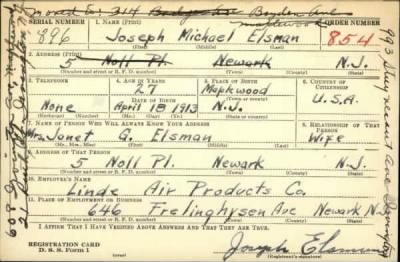 moved to: 314 Boyden Ave
Maplewood
SERIAL NUMBER 1. NAME (Print) ORDER NUMBER
896 Joseph Michael Elsman 854
(First) (Middle) (Last)
2. ADDRESS (Print)
5 Noll Pl. Newark N.J.
(Number and street or R. F. D. number) (Town) (County) (State)
3. TELEPHONE 4. AGE IN YEARS 5. PLACE OF BIRTH 6. COUNTRY OF CITIZENSHIP
27 Maplewood
DATE OF BIRTH
None April 18 1913 N.J. U.S.A.
7. NAME OF PERSON WHO WILL ALWAYS KNOW YOUR ADDRESS 8. RELATIONSHIP OF THAT PERSON
Mrs. Janet G. Elsman Wife
(Mr., Mrs., Miss) (First) (Middle) (Last)
9. ADDRESS OF THAT PERSON
5 Noll Pl. Newark N.J.
(Number and street or R. F. D. number) (Town) (County) (State)
10. EMPLOYER'S NAME
Linde Air Products Co.
11. PLACE OF EMPLOYMENT OR BUSINESS
646 Frelinghysen Ave Newark N.J.
(Number and street or R. F. D. number) (Town) (County) (State)
I AFFIRM THAT I HAVE VERIFIED ABOVE ANSWERS AND THAT THEY ARE TRUE.
REGISTRATION CARD
D. S. S. Form 1
Joseph Elsman
(Registrant's signature)